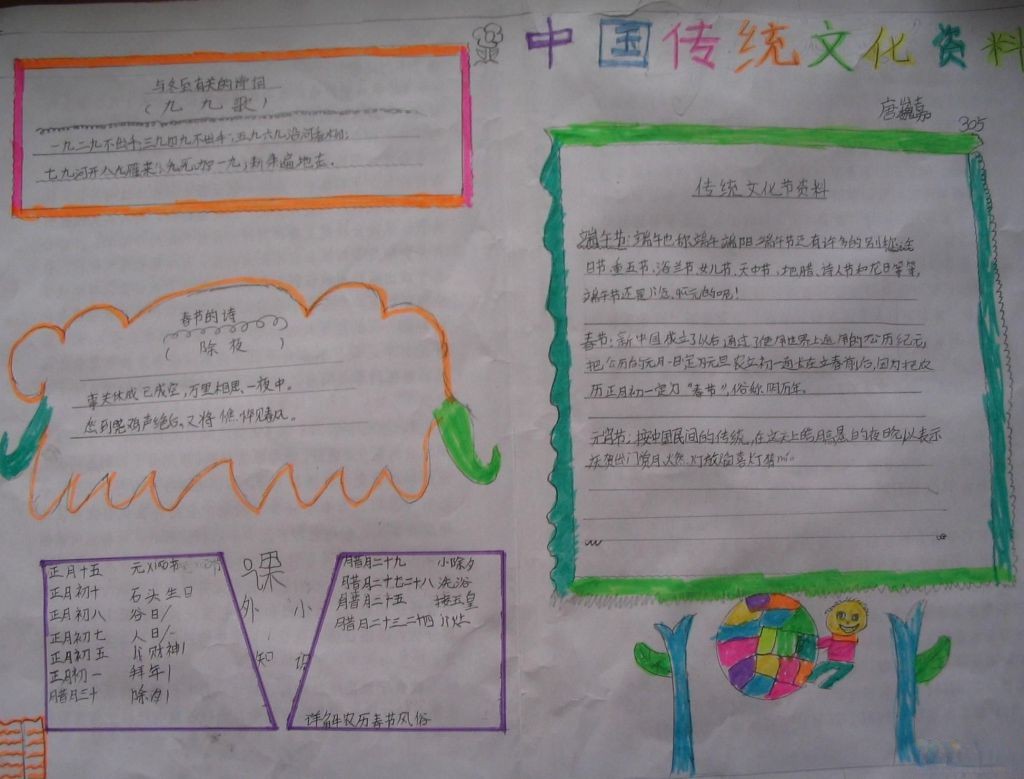 中国传统文化资料
唐 嘉
305
与冬至有关的诗词
(九九歌)
一九二九不出手;三九四九不出手;五九六九沿河看柳;
七九河开八九雁来;九九加一九;耕牛遍地走.
春节的诗
(除夜)
事关休戚已成空,万里相思一夜中。
愁到晓鸡声绝后,又将憔悴见春风。
传统文化节资料
端午节:端午也称端午端阳端午节还有许多的别称
日节重五节、浴兰节女儿节、天中节、地腊、诗人节和龙日等等,
端午节还是
春节:新中国成立了以后通过了使用世界上通用的公历纪元,
把公历的元月一日定为元旦农立初一通上在立春前后,因为把农
历正月初一定为“春节”,俗称阴历年。
元宵节:按中国民间的传统,在这天上皓月高悬的夜晚以表示
庆贺出门赏月、燃灯放焰喜灯猜
正月十五 元 节
正月初十 石头生日
正月初八 谷日/
正月初七 人日/
正月初五 财神/
正月初一 拜年/
腊月三十 除夕/
课
外 小
知 识
腊月二十九 小除夕
腊月二十七二十八 洗浴
腊月二十五 接五皇
腊月二十三二十四
详解农历春节风俗